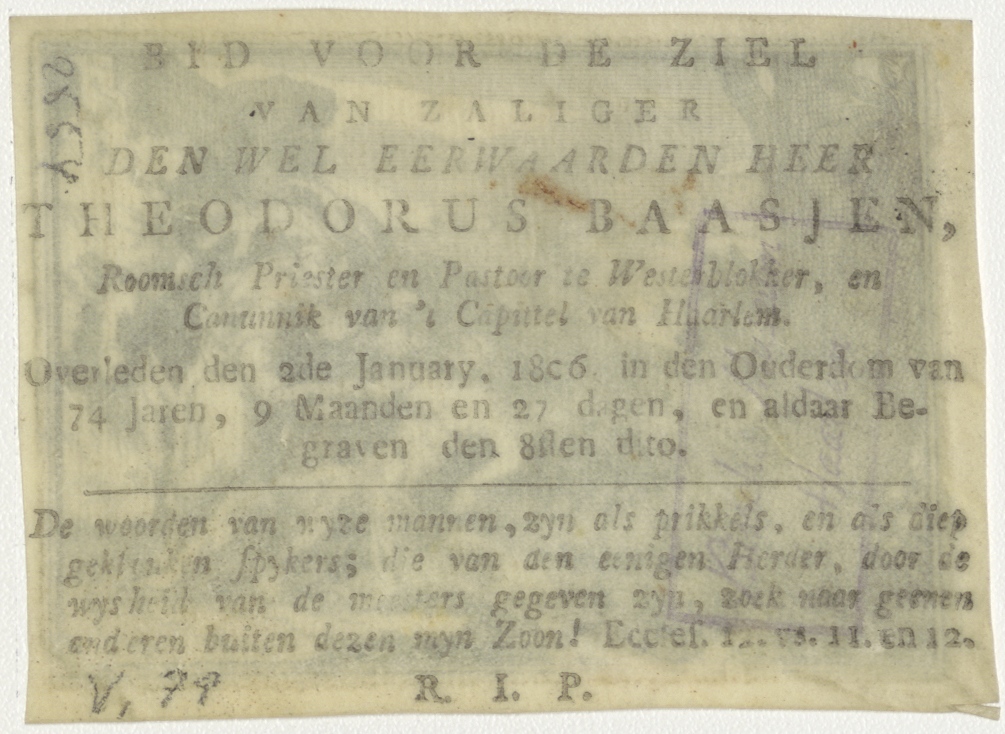 BID VOOR DE ZIEL
VAN ZALIGER
DEN WEL EERWAARDEN HEER
THEODORUS BAASJEN,
Roomsch Priester en Pastoor te Westerblokker, en
Canunnik van 't Capittel van Haarlem.
Overleden den 2de January. 1806 in den Ouderdom van
74 Jaren, 9 Maanden en 27 dagen, en aldaar Be-
graven den 8sten dito.
De woorden van wyze mannen, zyn als prikkels, en als diep
geklonken spykers; die van den eenigen Herder, door de
wysheid van de meesters gegeven zyn, zoek naar geenen
anderen buiten dezen myn Zoon! Eccles. 12. vs. 11. en 12.
V, 79
R. I. P.